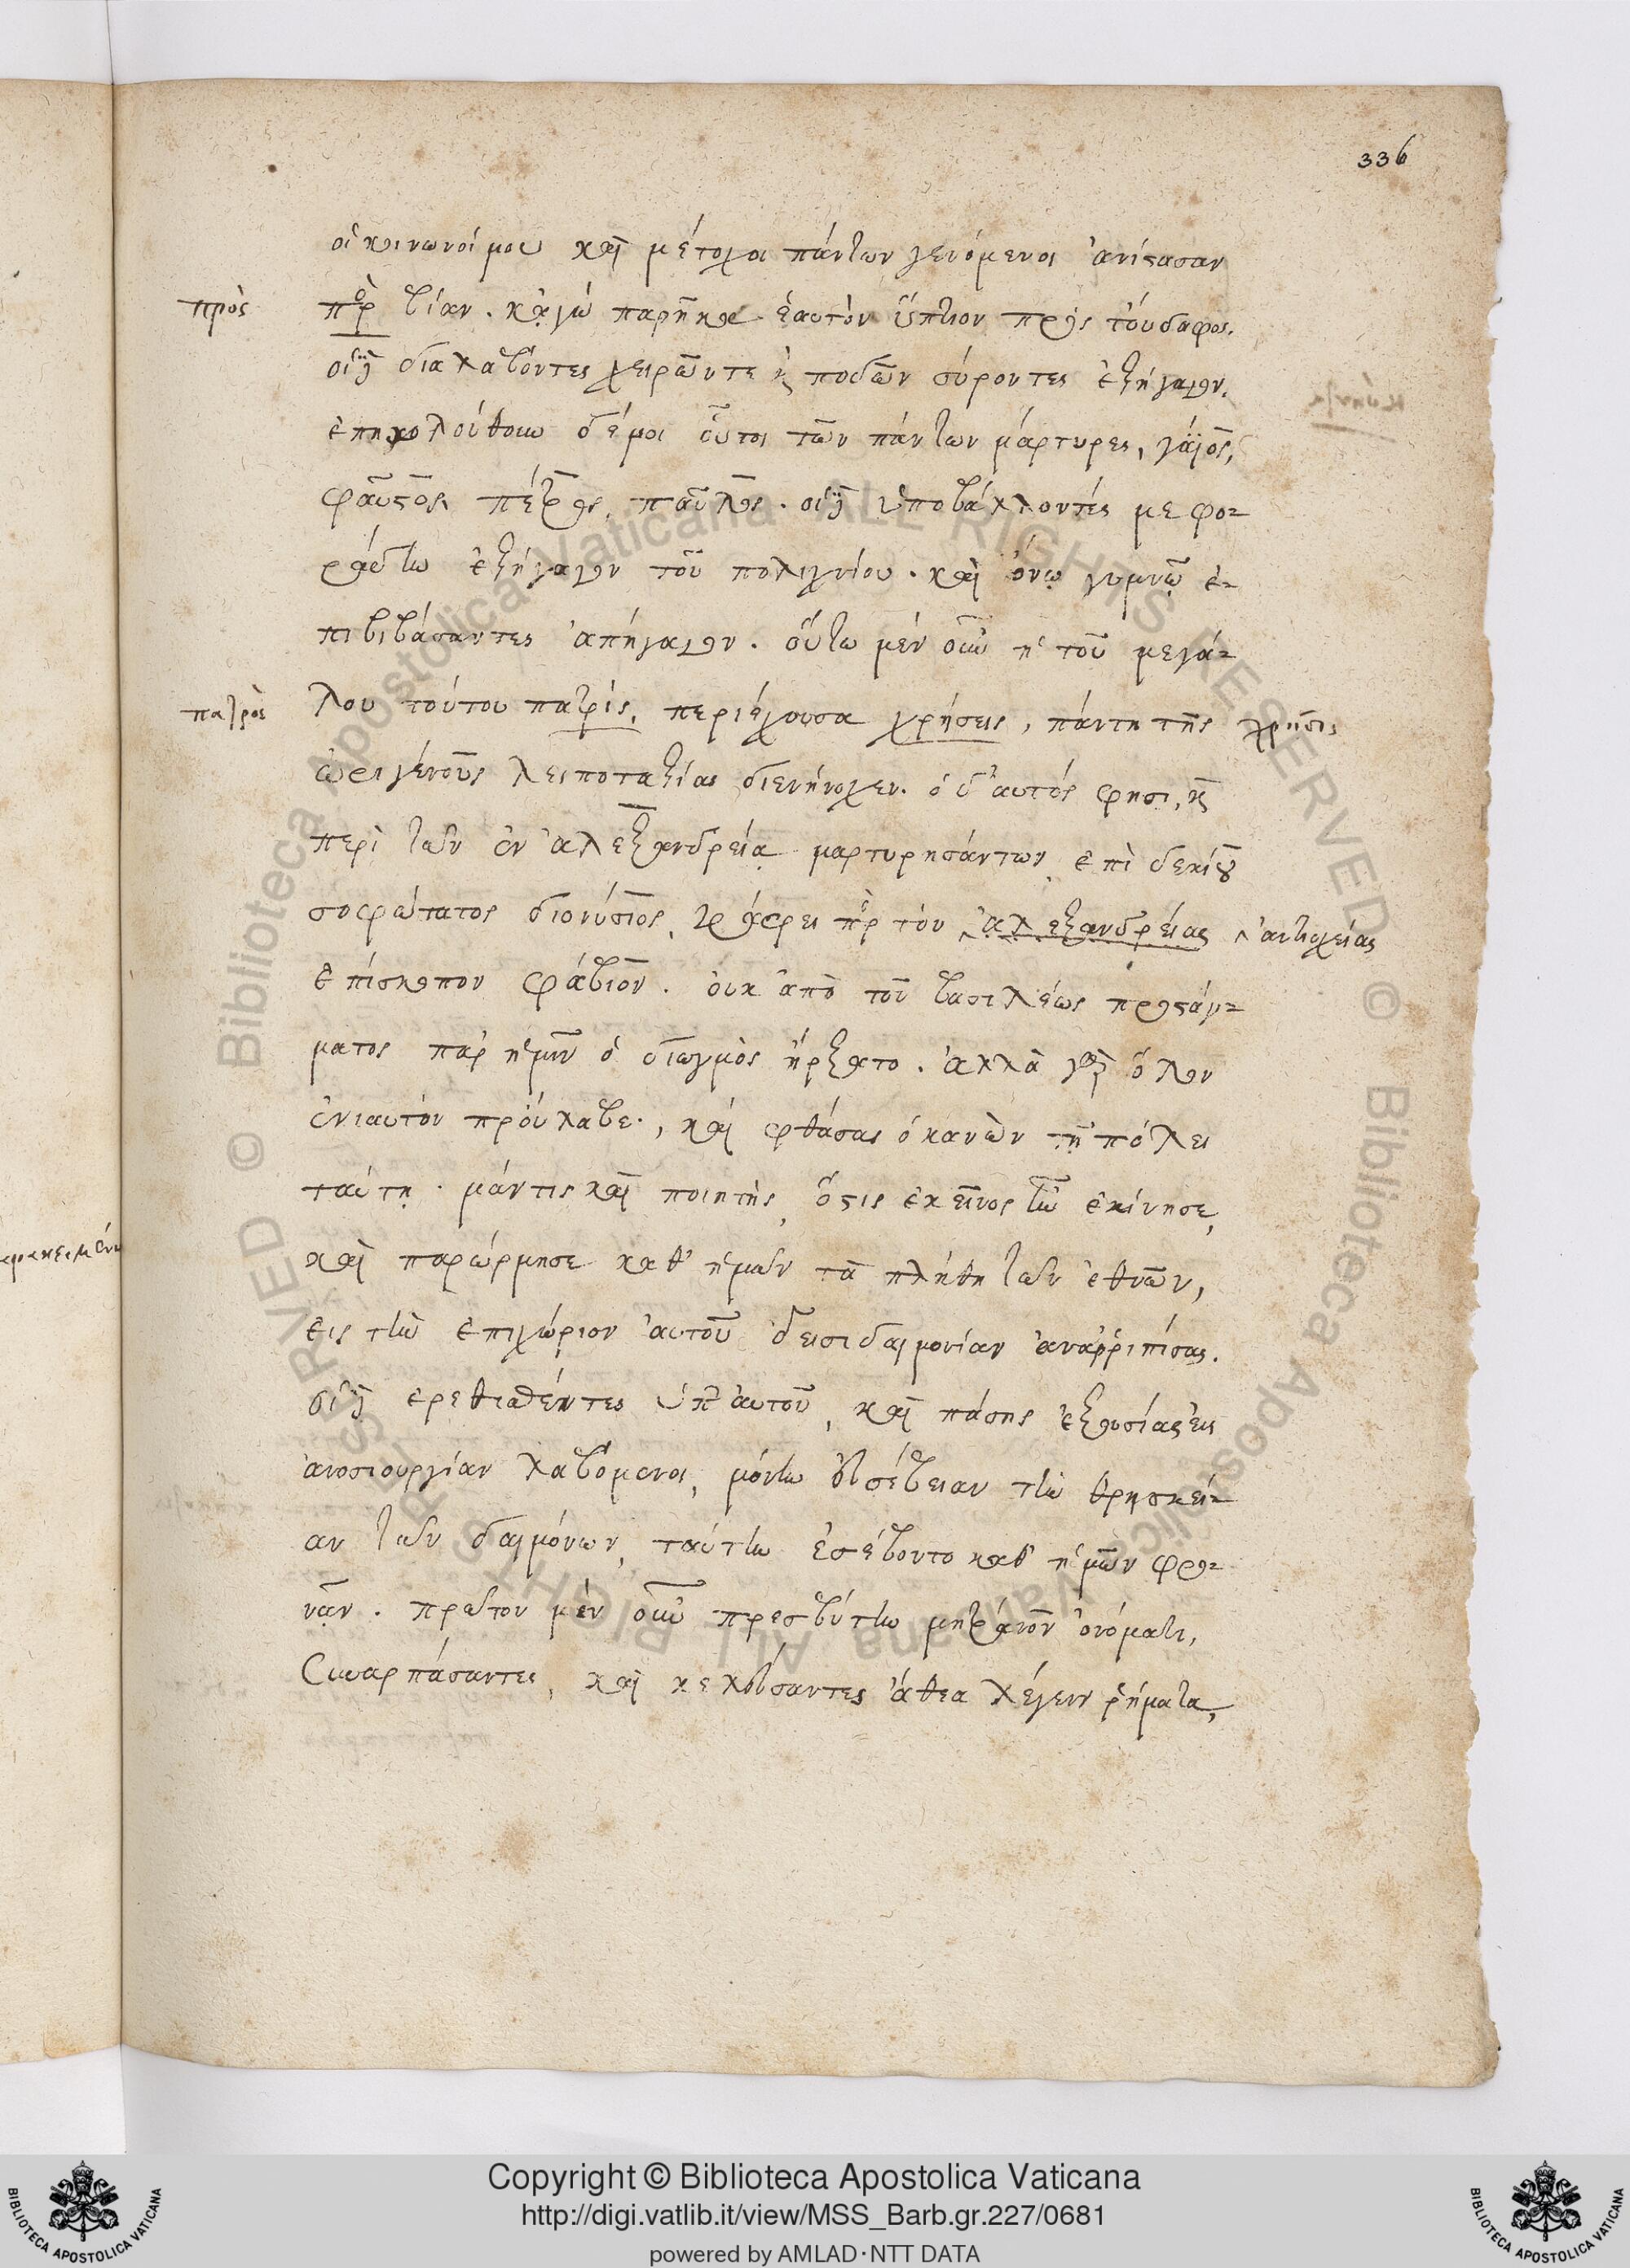 336
οἱ κοινωνοί μου καὶ μέτοχοι πάντων γενόμενοι ἀνίστασαν
πρὸς
πρ βίαν. κἀγὼ παρῆκα ἑαυτὸν ὕπτιον πρὸς τοὔδαφος.
οἱ δὲ διαλαβόντες χειρῶν τε καὶ ποδῶν σύροντες ἐξήγαγον.
ἐπηκολούθουν δέ μοι οὗτοι τῶν πάντων μάρτυρες, γάϊος,
φαῦστος πέτρος, παῦλος. οἱ δὲ ὑποβάλλοντές με φο-
ράδην ἐξήγαγον τοῦ πολιχνίου. καὶ ὄνῳ γυμνῷ ἐ-
πιβιβάσαντες ἀπήγαγον. οὕτω μὲν οὖν ἡ τοῦ μεγά-
πατρὸς
λου τούτου πατρίς, περιέχουσα χρήσεις, πάντη τῆς χρῆσις
ὠριγένους λειποταξίας διενήνοχεν. ὁ δ' αὐτός φησι, καὶ
περὶ τῶν ἐν ἀλεξανδρείᾳ μαρτυρησάντων ἐπὶ δεκίου
σοφώτατος διονύσιος, γράφει πρ τὸν ἀλεξανδρείας ἀντιοχείας
ἐπίσκοπον φάβιον. οὐκ ἀπὸ τοῦ βασιλέως προστάγ-
ματος παρ' ἡμῖν ὁ διωγμὸς ἤρξατο. ἀλλὰ γὰρ ὅλον
ἐνιαυτὸν προὔλαβε, καὶ φθάσας ὁ κανὼν τῇ πόλει
ταύτῃ. μάντις καὶ ποιητής, ὅστις ἐκεῖνος ἦν ἐκίνησε,
καὶ παρώρμησε καθ' ἡμῶν τὰ πλήθη τῶν ἐθνῶν,
εἰς τὴν ἐπιχώριον αὐτοῦ δεισιδαιμονίαν ἀναῤῥιπίσας.
οἱ δὲ ἐρεθισθέντες ὑπ' αὐτοῦ, καὶ πάσης ἐξουσίας εἰς
ἀνοσιουργίαν λαβόμενοι, μόνην εὐσέβειαν τὴν θρησκεί-
αν τῶν δαιμόνων, ταύτην ἐσέβοντο καθ' ἡμῶν φρο-
νᾶν. πρῶτον μὲν οὖν πρεσβύτην μητρᾶνον ὀνόματι,
συναρπάσαντες, καὶ κελεύσαντες ἄθεα λέγειν ῥήματα,
Copyright © Biblioteca Apostolica Vaticana
http://digi.vatlib.it/view/MSS_Barb.gr.227/0681
powered by AMLAD·NTT DATA